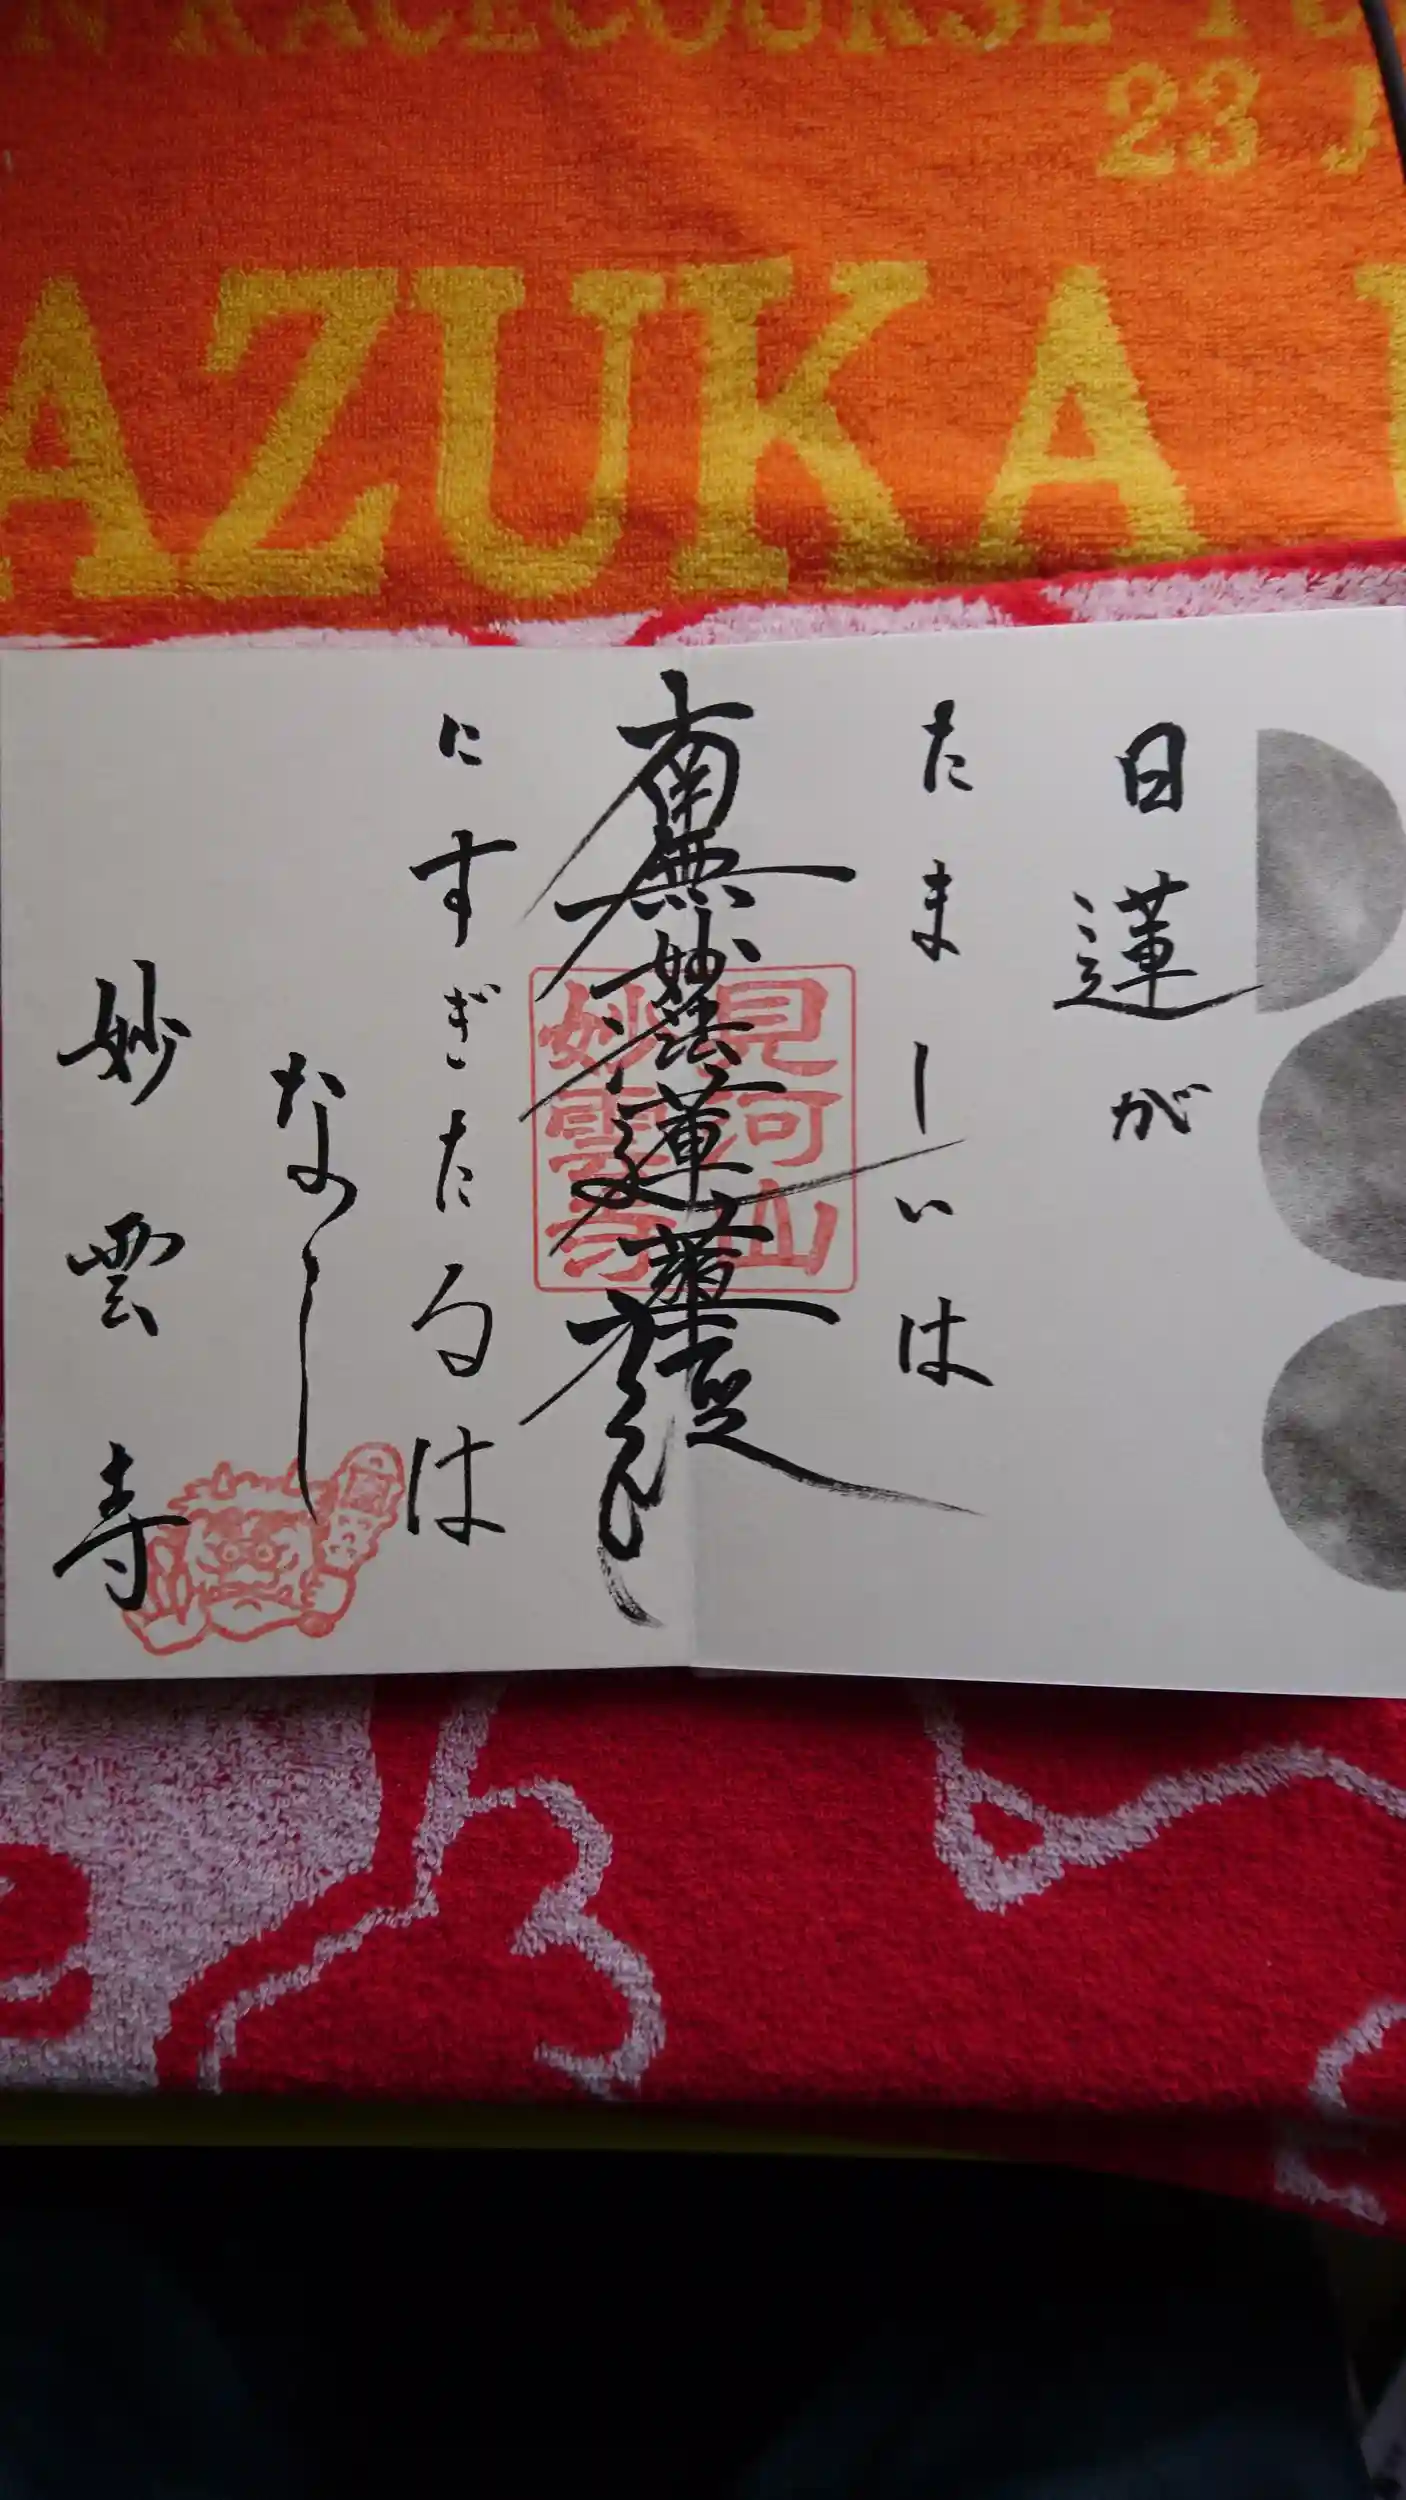 N RACECOURSE
23 J
AZUKA
日蓮が
たましいは
南無妙法蓮華経
にすぎたるは
なし
妙雲寺
見河山
妙雲寺